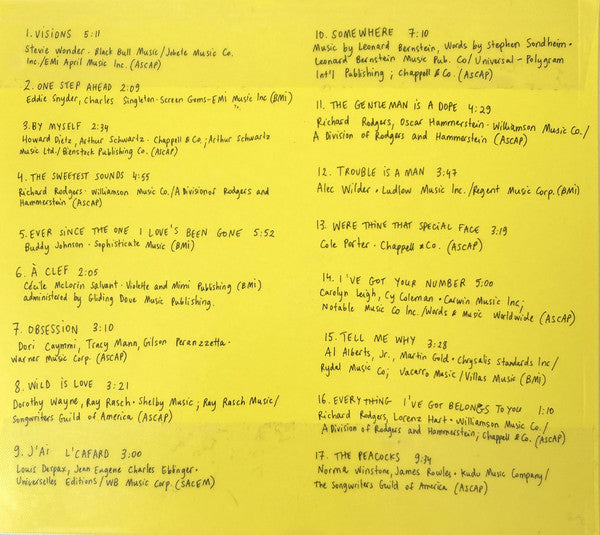 1. VISIONS 5:11
Stevie Wonder · Black Bull Music/Jobete Music Co.
Inc./EMI April Music Inc. (ASCAP)
2. ONE STEP AHEAD 2:09
Eddie Snyder, Charles Singleton · Screen Gems-EMI Music Inc (BMI)
3. BY MYSELF 2:34
Howard Dietz, Arthur Schwartz · Chappell & Co.; Arthur Schwartz
Music Ltd./Bienstock Publishing Co. (ASCAP)
4. THE SWEETEST SOUNDS 4:55
Richard Rodgers · Williamson Music Co./A Division of Rodgers and
Hammerstein (ASCAP)
5. EVER SINCE THE ONE I LOVE'S BEEN GONE 5:52
Buddy Johnson · Sophisticate Music (BMI)
6. À CLEF 2:05
Cécile McLorin Salvant · Violette and Mimi Publishing (BMI)
administered by Gliding Dove Music Publishing.
7. OBSESSION 3:10
Dori Caymmi, Tracy Mann, Gilson Peranzzetta ·
Warner Music Corp. (ASCAP)
8. WILD IS LOVE 3:21
Dorothy Wayne, Ray Rasch · Shelby Music; Ray Rasch Music/
Songwriters Guild of America (ASCAP)
9. J'AI L'CAFARD 3:00
Louis Despax, Jean Eugene Charles Eblinger ·
Universelles Editions/WB Music Corp. (SACEM)
10. SOMEWHERE 7:10
Music by Leonard Bernstein, Words by Stephen Sondheim ·
Leonard Bernstein Music Pub. Co/Universal-Polygram
Int'l Publishing; Chappell & Co. (ASCAP)
11. THE GENTLEMAN IS A DOPE 4:29
Richard Rodgers, Oscar Hammerstein · Williamson Music Co./
A Division of Rodgers and Hammerstein (ASCAP)
12. TROUBLE IS A MAN 3:47
Alec Wilder · Ludlow Music Inc./Regent Music Corp. (BMI)
13. WERE THINE THAT SPECIAL FACE 3:19
Cole Porter · Chappell & Co. (ASCAP)
14. I'VE GOT YOUR NUMBER 5:00
Carolyn Leigh, Cy Coleman · Carwin Music Inc;
Notable Music Co Inc./Words & Music Worldwide (ASCAP)
15. TELL ME WHY 3:28
Al Alberts, Jr., Martin Gold · Chrysalis Standards Inc/
Rydal Music Co; Vacarro Music/Villas Music (BMI)
16. EVERYTHING I'VE GOT BELONGS TO YOU 1:10
Richard Rodgers, Lorenz Hart · Williamson Music Co./
A Division of Rodgers and Hammerstein; Chappell & Co. (ASCAP)
17. THE PEACOCKS 9:34
Norma Winstone, James Rowles · Kudu Music Company/
The Songwriters Guild of America (ASCAP)